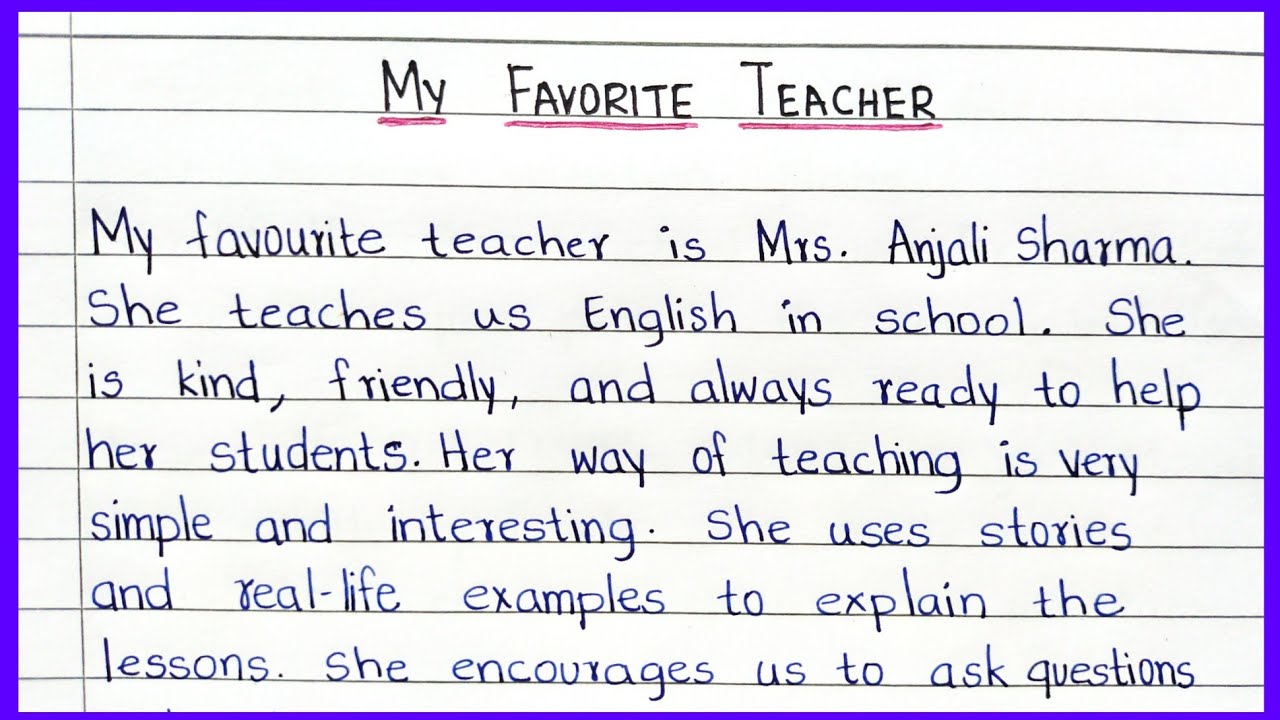 MY FAVORITE TEACHER
My favourite teacher is Mrs. Anjali Sharma.
She teaches us English in school. She
is kind, friendly, and always ready to help
her students. Her way of teaching is very
simple and interesting. She uses stories
and real-life examples to explain the
lessons. She encourages us to ask questions